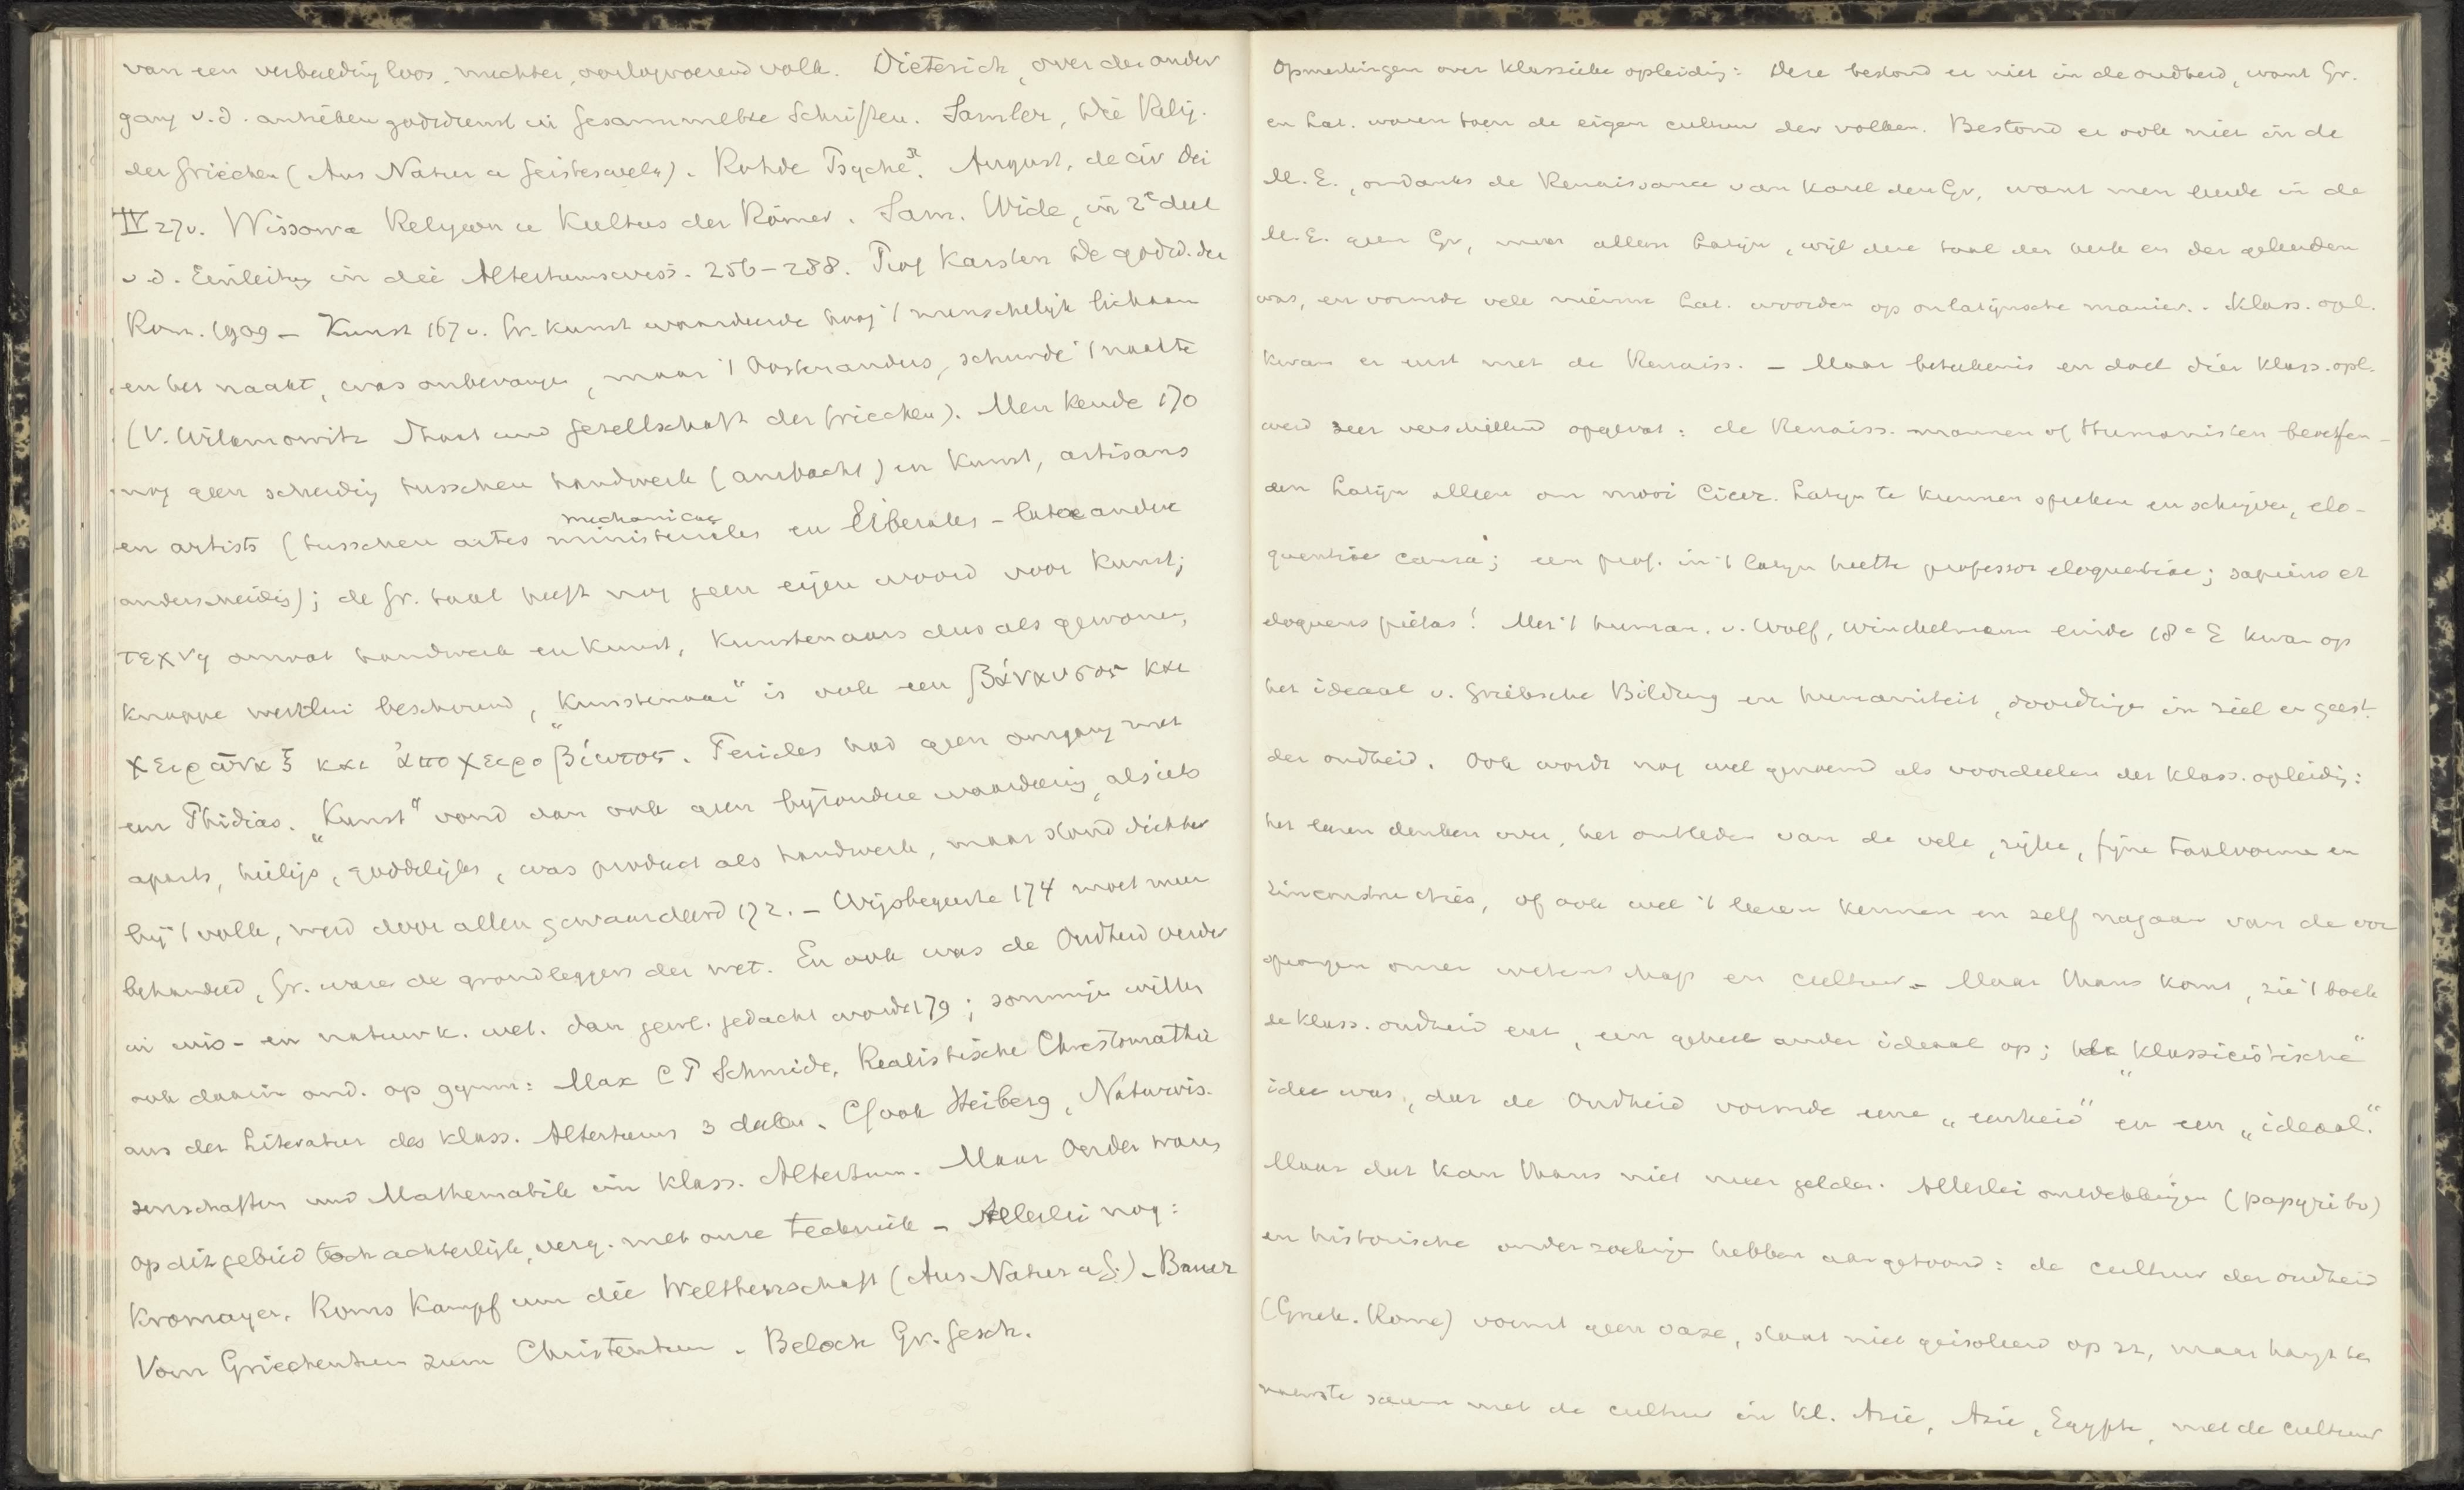 van een verbeelding loos, nuchter, oorlogvoerend volk. Dieterich, over den onder
gang v.d. antieken godsdienst in Gesammelte Schriften. Samter, Die Relig.
der Griechen (Aus Natur u Geisteswelt). Rohde Psyche. August. de civ Dei
IV 27v. Wissowa Religion u Kultus der Römer. Sam. Wide, in 2e deel
v.d. Einleitung in die Altertumswiss. 256-288. Prof Karsten De godsd. der
Rom. 1909 - Kunst 167v. Gr. kunst waardeerde hoog 't menschelijk lichaam
en het naakt, was onbevangen, maar 't Oosten anders, schuwde 't naakte
(V. Wilamowitz Staat und Gesellschaft der Griechen). Men kende 170
nog geen scheiding tusschen handwerk (ambacht) en kunst, artisans
en artists (tusschen artes ministeriales mechanicae en liberales - latere andere
onderscheidig); de Gr. taal heeft nog geen eigen woord voor kunst;
τεχνη omvat handwerk en kunst, kunstenaars dus als gewone,
knappe werklui beschouwd, „Kunstenaar" is ook een βάναυσος και
χειρῶναξ και ἀποχειροβίωτος. Pericles had geen omgang met
een Phidias. „Kunst" vond dan ook geen bijzondere waardeering, als iets
aparts, heiligs, goddelijks, was product als handwerk, maar stond dichter
bij 't volk, werd door allen gewaardeerd 172. - Wijsbegeerte 174 moet men
behandeld, Gr. waren de grondleggers der wet. En ook was de Oudheid verder
in wis- en natuurk. wet. dan gewl. gedacht wordt 179; sommige willen
ook daarin ond. op gymn: Max C P Schmidt, Realistische Chrestomathie
aus der Literatur des klass. Altertums 3 deelen. Cf ook Heiberg, Naturwis-
senschaften und Mathematik im klass. Altertum. Maar Oudh. was
op dit gebied toch achterlijk, verg. met onze techniek - Allerlei nog:
Kromayer, Roms Kampf um die Weltherrschaft (Aus Natur u G.) - Bauer
Vom Griechentum zum Christentum. Beloch Gr. Gesch.
Opmerkingen over klassieke opleidig: Deze bestond er niet in de oudheid, want Gr.
en Lat. waren toen de eigen cultuur der volken. Bestond er ook niet in de
M.E., ondanks de Renaissance van Karel den Gr, want men leerde in de
M.E. geen Gr, maar alleen Latijn, wijl deze taal der kerk en der geleerden
was, en vormde vele nieuwe Lat. woorden op onlatijnsche manier. - Klass. opl.
kwam er eerst met de Renaiss. - Maar beteekenis en doel dier klass. opl.
werd zeer verschillend opgevat: de Renaiss. mannen of Humanisten beoefen-
den Latijn alleen om mooi Cicer. Latijn te kunnen spreken en schrijven, elo-
quentiae causa; een prof. in 't Latijn heette professor eloquentiae; sapiens et
eloquens pietas! Met 't human. v. Wolf, Winckelmann einde 18e E kwam op
het ideaal v. Grieksche Bildung en humaniteit, doordringen in ziel en geest
der oudheid. Ook wordt nog wel genoemd als voordeelen der klass. opleidig:
het leeren denken over, het ontleden van de vele, rijke, fijne taalvormen en
zinconstructies, of ook wel 't leeren kennen en zelf nagaan van de oor
sprongen onzer wetenschap en cultuur. - Maar thans komt, zie 't boek
de klass. oudheid enz, een geheel ander ideaal op; de „klassicistische"
idee was, dat de Oudheid vormde eene „eenheid" en een „ideaal."
Maar dat kan thans niet meer gelden. Allerlei ontdekkingen (papyri bv)
en historische onderzoekingen hebben aangetoond: de cultuur der oudheid
(Griek. Rome) vormt geen oaze, staat niet geïsoleerd op zz, maar hangt ten
nauwste samen met de cultuur in Kl. Azië, Azië, Egypte, met de cultuur